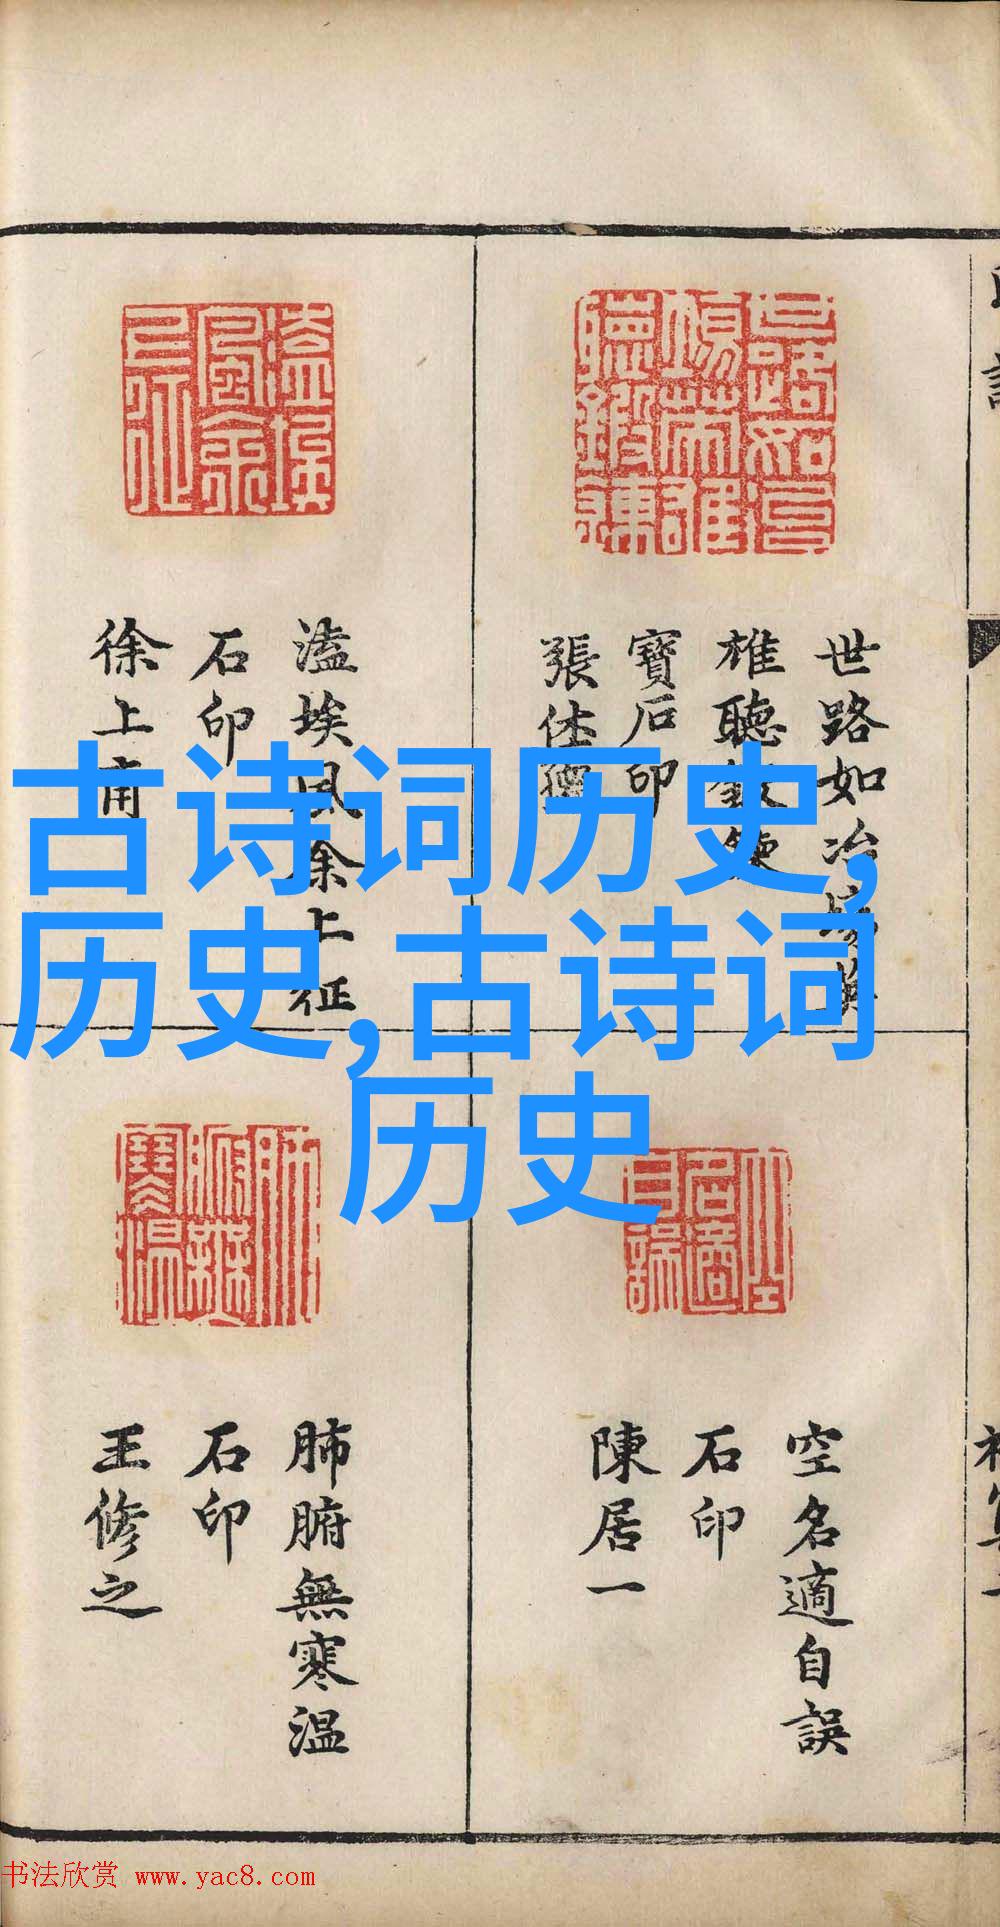 古诗词历史,
历史,古诗词
历史
世路如冶場英
雄聽鍛鍊
寶石印
張
空名適自誤
石印
陳居一
溘埃風余上征
石印
徐上甫
肺腑無寒温
石印
王修之
书法欣赏 www.yac8.com